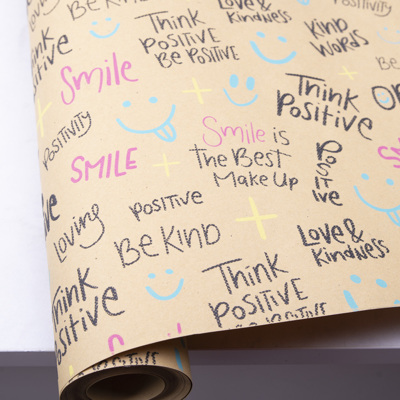 Loving
Be Kind
Think
Positive
Be Positive
Love &
Kindness
Positivity
Kind
Words
Think
Positive
Smile
Think
Positive
Be
Positivity
SMILE
Smile is
the Best
Make Up
Positive
Loving
Positive
Be Kind
Love &
Kindness
Think
Positive
Think
Positive
Be Positive
Smile
Positive